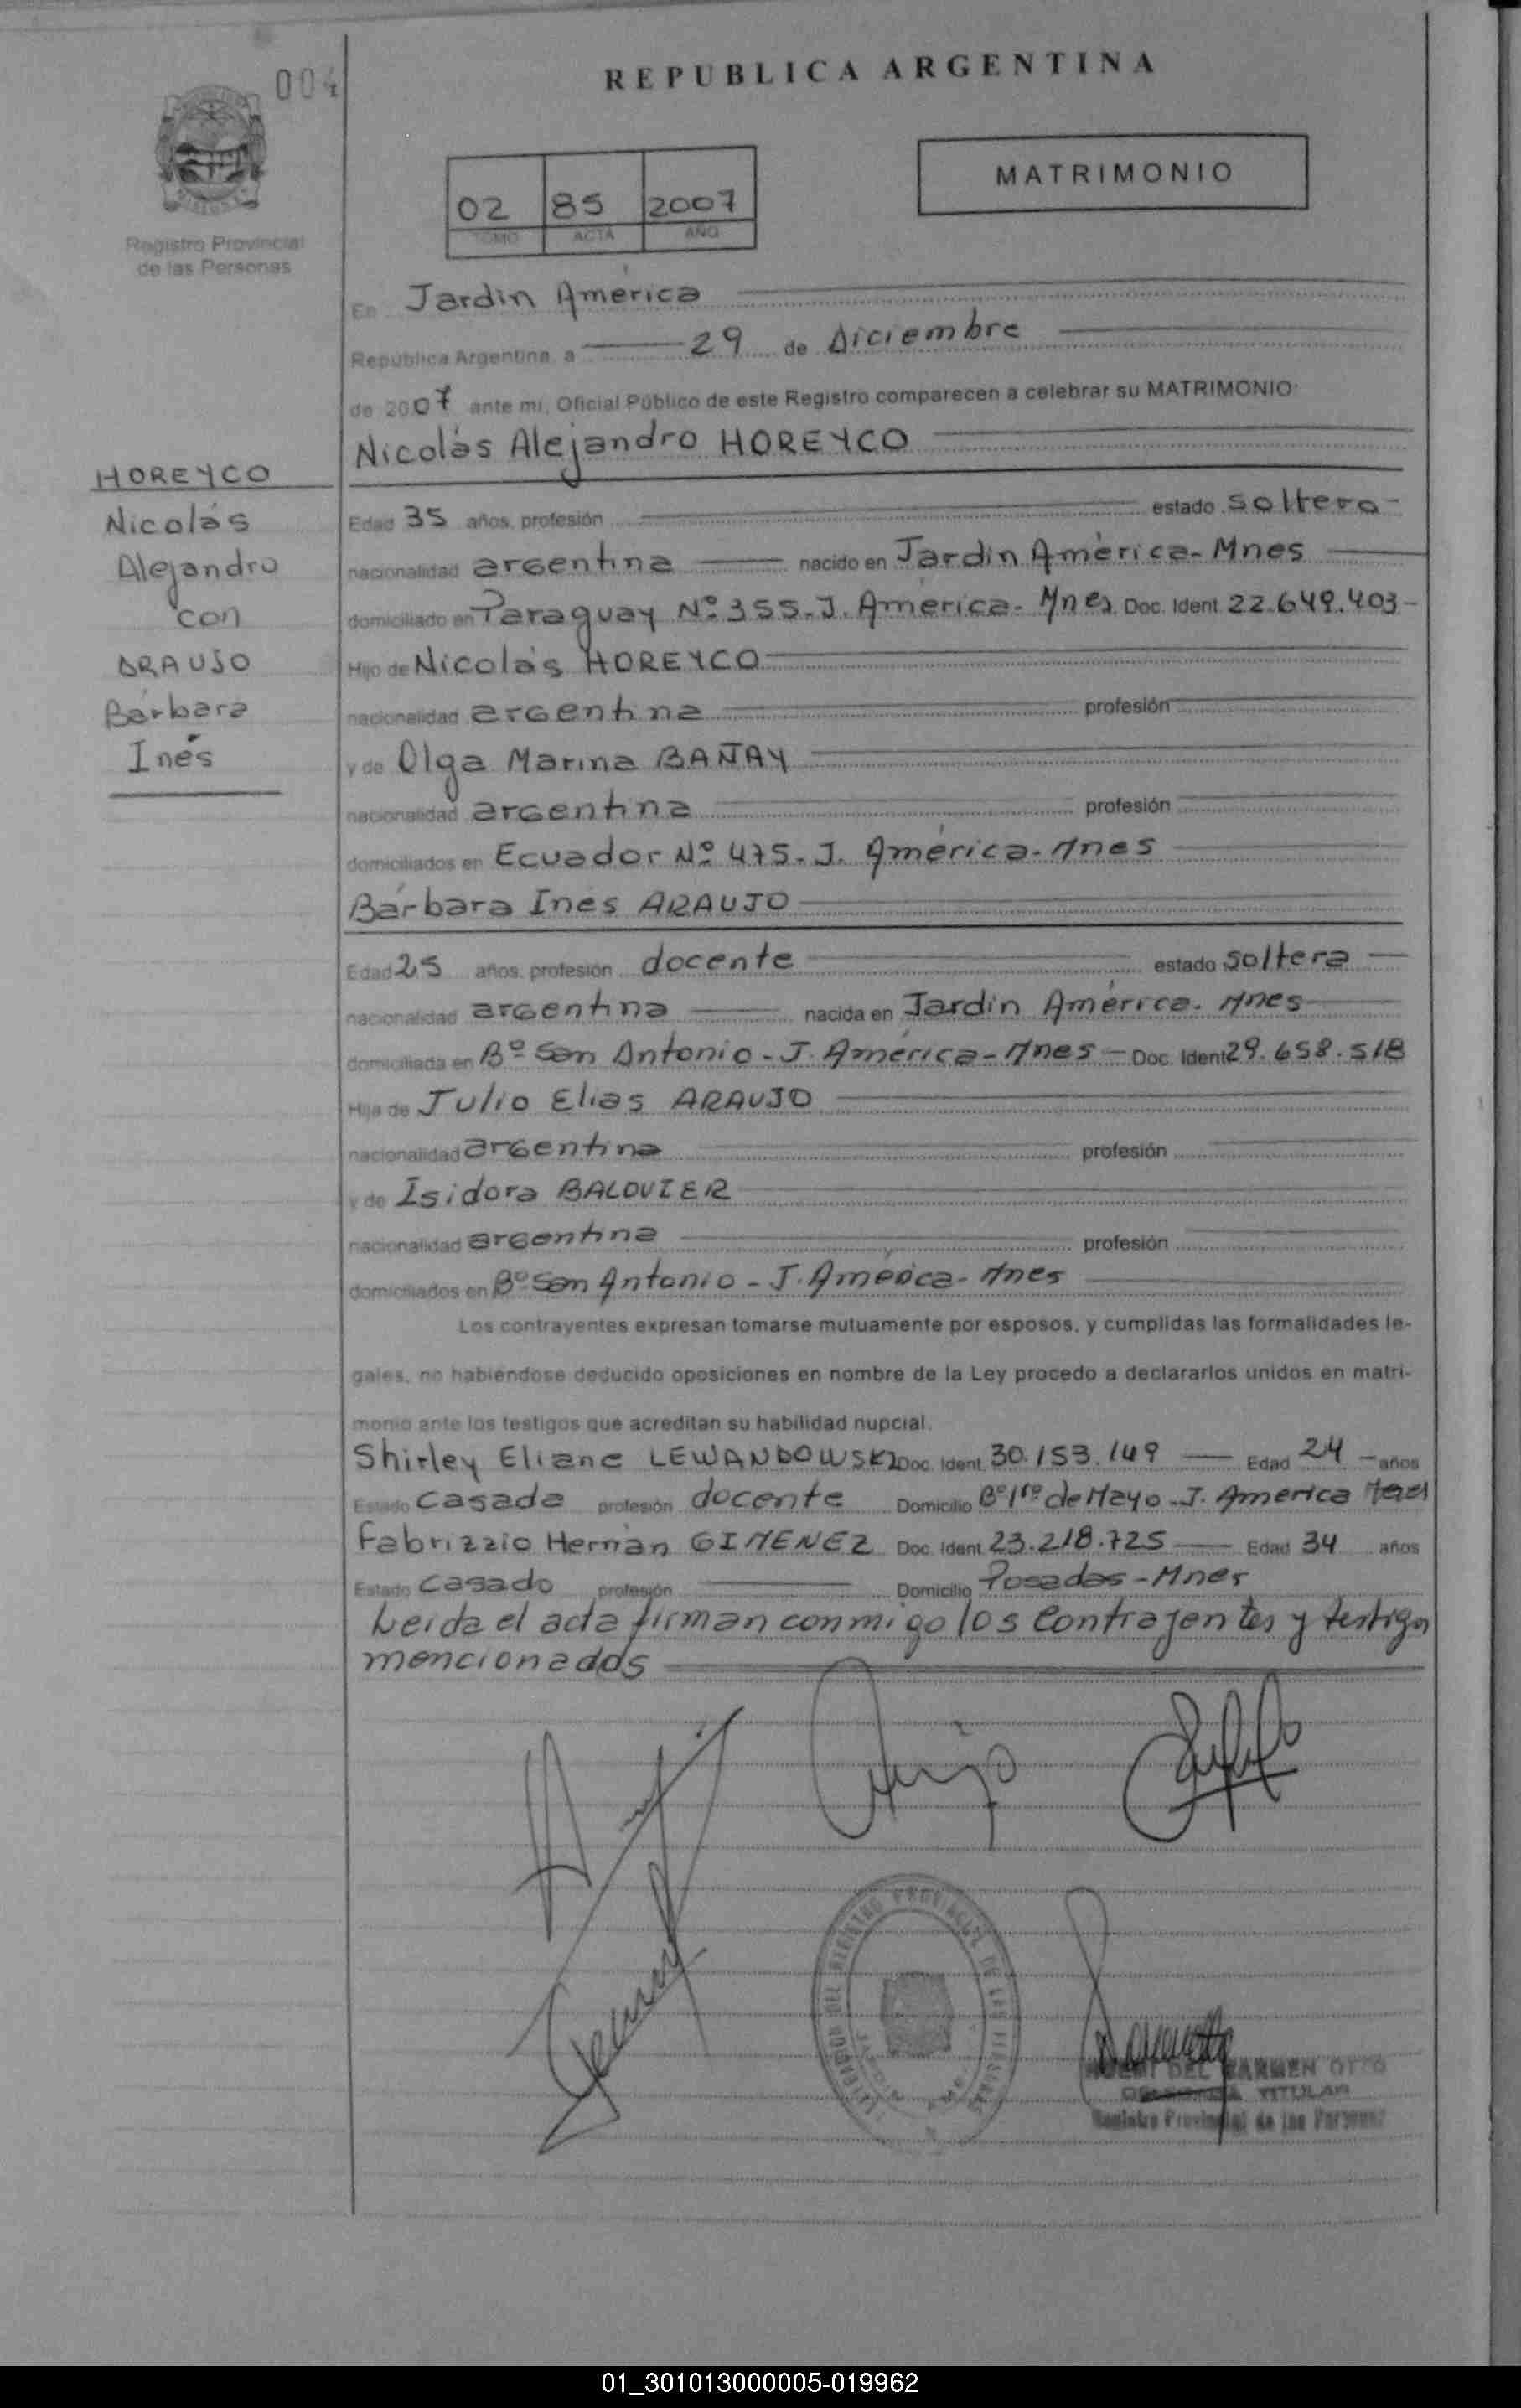 004
REPUBLICA ARGENTINA
MATRIMONIO
02 85 2007
TOMO ACTA AÑO
Registro Provincial
de las Personas
En Jardín América
República Argentina, a 29 de Diciembre
de 2007 ante mi, Oficial Público de este Registro comparecen a celebrar su MATRIMONIO
Nicolás Alejandro HOREYCO
HOREYCO
Nicolás
Alejandro
con
ARAUJO
Bárbara
Inés
Edad 35 años, profesión estado soltero
nacionalidad argentina nacido en Jardín América - Mnes
domiciliado en Paraguay Nº 355 - J. América - Mnes Doc. Ident. 22.649.403 -
Hijo de Nicolás HOREYCO
nacionalidad argentina profesión
y de Olga Marina BAÑAY
nacionalidad argentina profesión
domiciliados en Ecuador Nº 475 - J. América - Mnes
Bárbara Inés ARAUJO
Edad 25 años, profesión docente estado soltera
nacionalidad argentina nacida en Jardín América - Mnes
domiciliada en Bº San Antonio - J. América - Mnes - Doc. Ident 29.658.518
Hija de Julio Elias ARAUJO
nacionalidad argentina profesión
y de Isidora BALOVIER
nacionalidad argentina profesión
domiciliados en Bº San Antonio - J. América - Mnes
Los contrayentes expresan tomarse mutuamente por esposos, y cumplidas las formalidades le-
gales, no habiéndose deducido oposiciones en nombre de la Ley procedo a declararlos unidos en matri-
monio ante los testigos que acreditan su habilidad nupcial.
Shirley Eliane LEWANDOWSKI Doc. Ident. 30.153.149 Edad 24 años
Estado casada profesión docente Domicilio Bº 1ro de Mayo - J. America
Fabrizzio Hernán GIMENEZ Doc. Ident. 23.218.725 Edad 34 años
Estado casado profesión Domicilio Posadas - Mnes
Leída el acta firman conmigo los contrayentes y testigos
mencionados
DEL CARMEN OTTO
DELEGADA TITULAR
Registro Provincial de las Personas
01_301013000005-019962